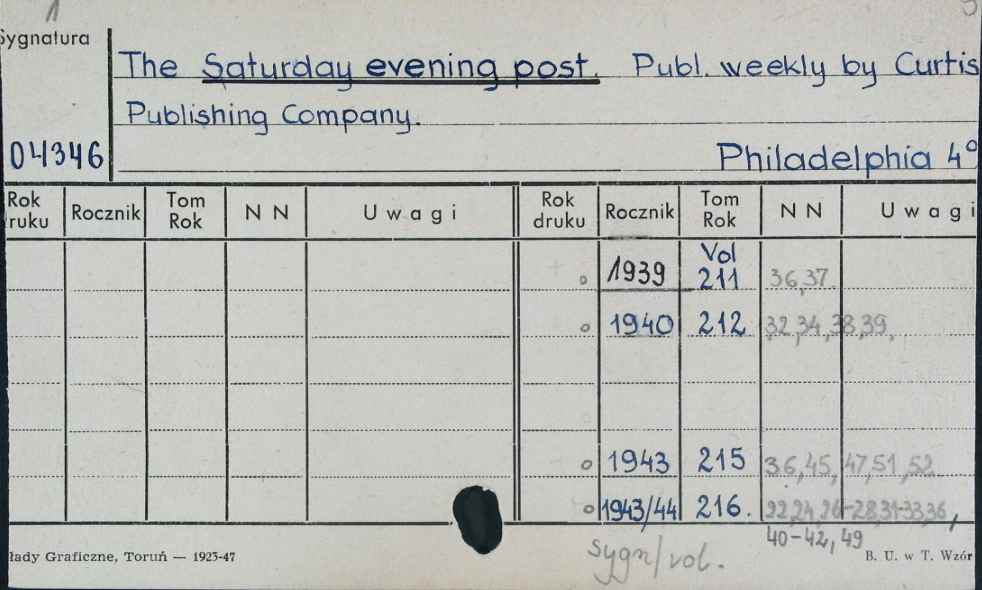 1
Sygnatura
The Saturday evening post. Publ. weekly by Curtis
Publishing Company.
04346
Philadelphia 4°
Rok druku Rocznik Tom Rok N N Uwagi Rok druku Rocznik Tom Rok N N Uwagi
o 1939 Vol 211 36,37.
o 1940 212 32,34,38,39,
o 1943 215 36,45,47,51,52
o 1943/44 216. 22,24,26-28,31-33,36,
40-42,49
łady Graficzne, Toruń — 1923-47
sygn/vol.
B. U. w T. Wzór